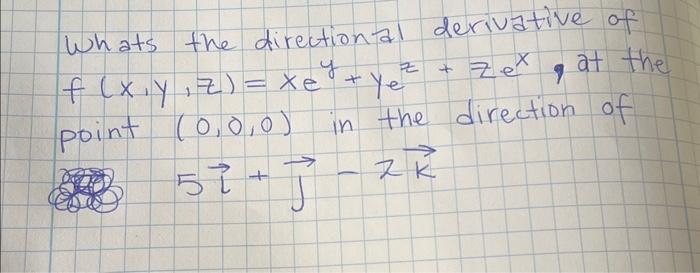 Whats the directional derivative of
f(x,y,z) = xe^y + ye^z + ze^x , at the
point (0,0,0) in the direction of
5i⃗ + j⃗ - 2k⃗